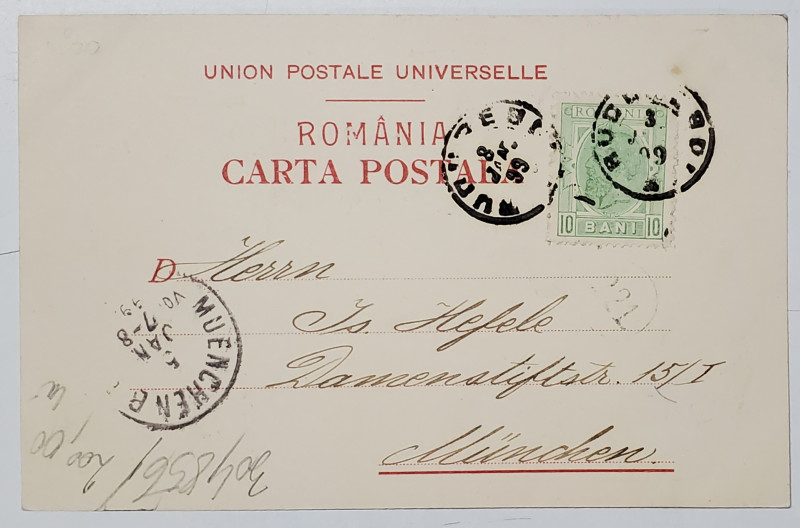 UNION POSTALE UNIVERSELLE
ROMÂNIA
CARTA POSTALA
ROMANIA
10 BANI 10
8
JAN.
99
D Herrn
Js. Hefele
Damenstiftstr. 15/I
München.
MUENCHEN
VO.
7-8
JAN
99
3048556/
200,00
lei